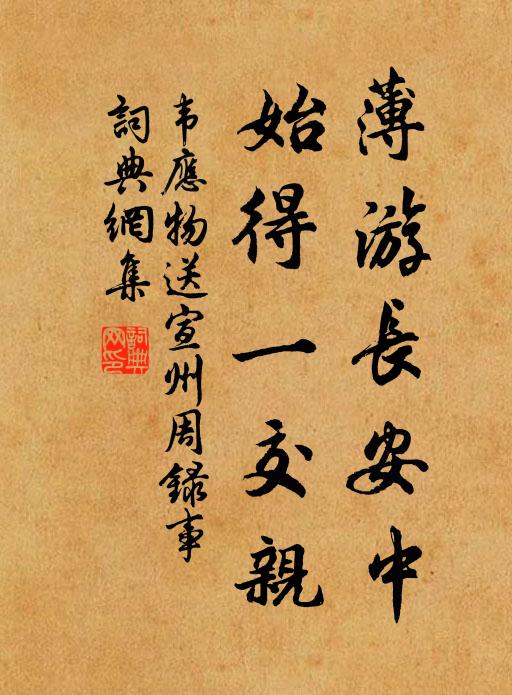 薄游長安中
始得一交親
韦應物送宣州周錄事
詞典網集
詞典网印